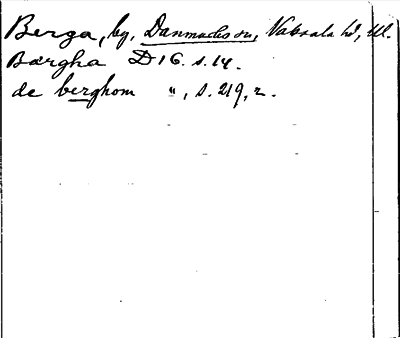 Berga, by, Danmarks sn, Vaksala hd, Ul.
Bærgha D 16. s. 14.
de berghom ", s. 219, 2.